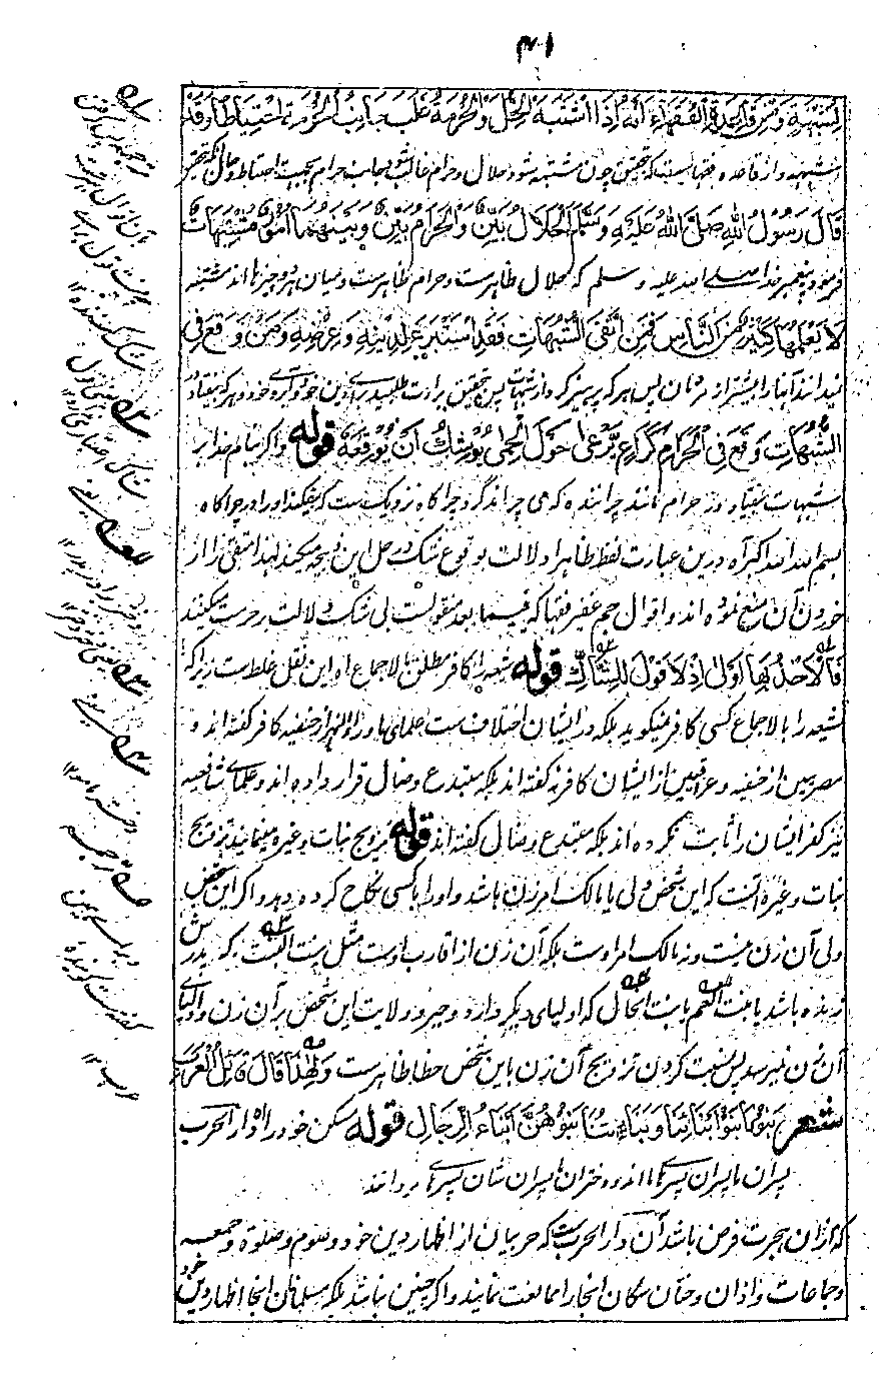 ۴۱
لشبهة ومن قاعدة الفقهاء انه اذا اشتبه الحل والحرمة غلب جانب الحرمة احتياطا وقد
مشتبه و از قاعده فقها اینست که تحقیق چون مشتبه شود حلال و حرام غالب شود جانب حرام بجهت احتیاط و حال آنکه تحقیق
قَالَ رَسُوْلُ اللهِ صَلَّى اللهُ عَلَيْهِ وَسَلَّمَ الْحَلَالُ بَيِّنٌ وَالْحَرَامُ بَيِّنٌ وَبَيْنَهُمَا اُمُوْرٌ مُشْتَبِهَاتٌ
فرمود پیغمبر خدا صلی الله علیه و سلم که حلال ظاهرست و حرام ظاهرست و میان هر دو چیزها اند مشتبه
لَا يَعْلَمُهَا كَثِيْرٌ مِنَ النَّاسِ فَمَنِ اتَّقَى الشُّبُهَاتِ فَقَدِ اسْتَبْرَءَ لِدِيْنِهِ وَعِرْضِهِ وَمَنْ وَقَعَ فِي
نمیداند آنها را بیشتر از مردمان پس هر که پرهیز کرد از شبهات پس تحقیق براءت طلبید برای دین خود و آبروی خود و هر که بیفتاد در
الشُّبُهَاتِ وَقَعَ فِي الْحَرَامِ كَرَاعٍ يَرْعَى حَوْلَ الْحِمَى يُوْشِكُ اَنْ يُوْقِعَهُ قوله واگر بنام خدا بر
شبهات بیفتاد در حرام مانند چراننده که می چراند گرد چراگاه نزدیک ست که بیفکند او را در چراگاه
بسم الله الله اکبر آه درین عبارت لفظ ظاهرا دلالت بوقوع شک در حل این ذبیحه میکند لهذا متقی را از
خوردن آن منع نموده اند و اقوال جم غفیر فقها که فیما بعد منقولست بی شک دلالت بر حرمت میکنند
فَالْاَخْذُ بِهَا اَوْلٰى اِذْ لَا قَوْلَ لِلشَّاكِّ قوله شیعه را کافر مطلق بالاجماع اه این نقل غلط ست زیرا که
شیعه را بالاجماع کسی کافر نمیگوید بلکه در ایشان اختلاف ست علمای ماوراء النهر از حنفیه کافر گفته اند و
مصریین از حنفیه و عراقیین از ایشان کافر نه گفته اند بلکه مبتدع و ضال قرار داده اند و علمای شافعیه
نیز کفر ایشان را ثابت نکرده اند بلکه مبتدع و ضال گفته اند قوله تزویج بنات و غیره مینمایند تزویج
بنات و غیره آنست که این شخص ولی یا مالک امر زن باشد و او را با کسی نکاح کرده دهد و اگر این شخص
ولی آن زن نیست و نه مالک امر اوست بلکه آن زن از اقارب اوست مثل بنت البنت که پدرش
زنده باشد یا بنت العم یا بنت الخال که اولیای دیگر دارد و جبر و ولایت این شخص بر آن زن و اولیای
آن زن نمیرسد پس نسبت کردن تزویج آن زن باین شخص خطا ظاهرست وَلِهٰذَا قَالَ قَائِلُ الْعَرَبِ
شعر بَنُوْنَا بَنُوْ اَبْنَائِنَا وَبَنَاتُنَا بَنُوْهُنَّ اَبْنَاءُ الرِّجَالِ قوله مسکن خود را اه دار الحرب
پسران ما پسران پسرهای ما اند و دختران ما پسران شان پسرهای مردانند
که از آن هجرت فرض باشد آن دار الحرب ست که حربیان از اظهار دین خود و صوم و صلوة و جمعه
و جماعات و اذان و ختان سکان انجا را ممانعت نمایند و اگر چنین نباشد بلکه مسلمانان انجا اظهار دین خود